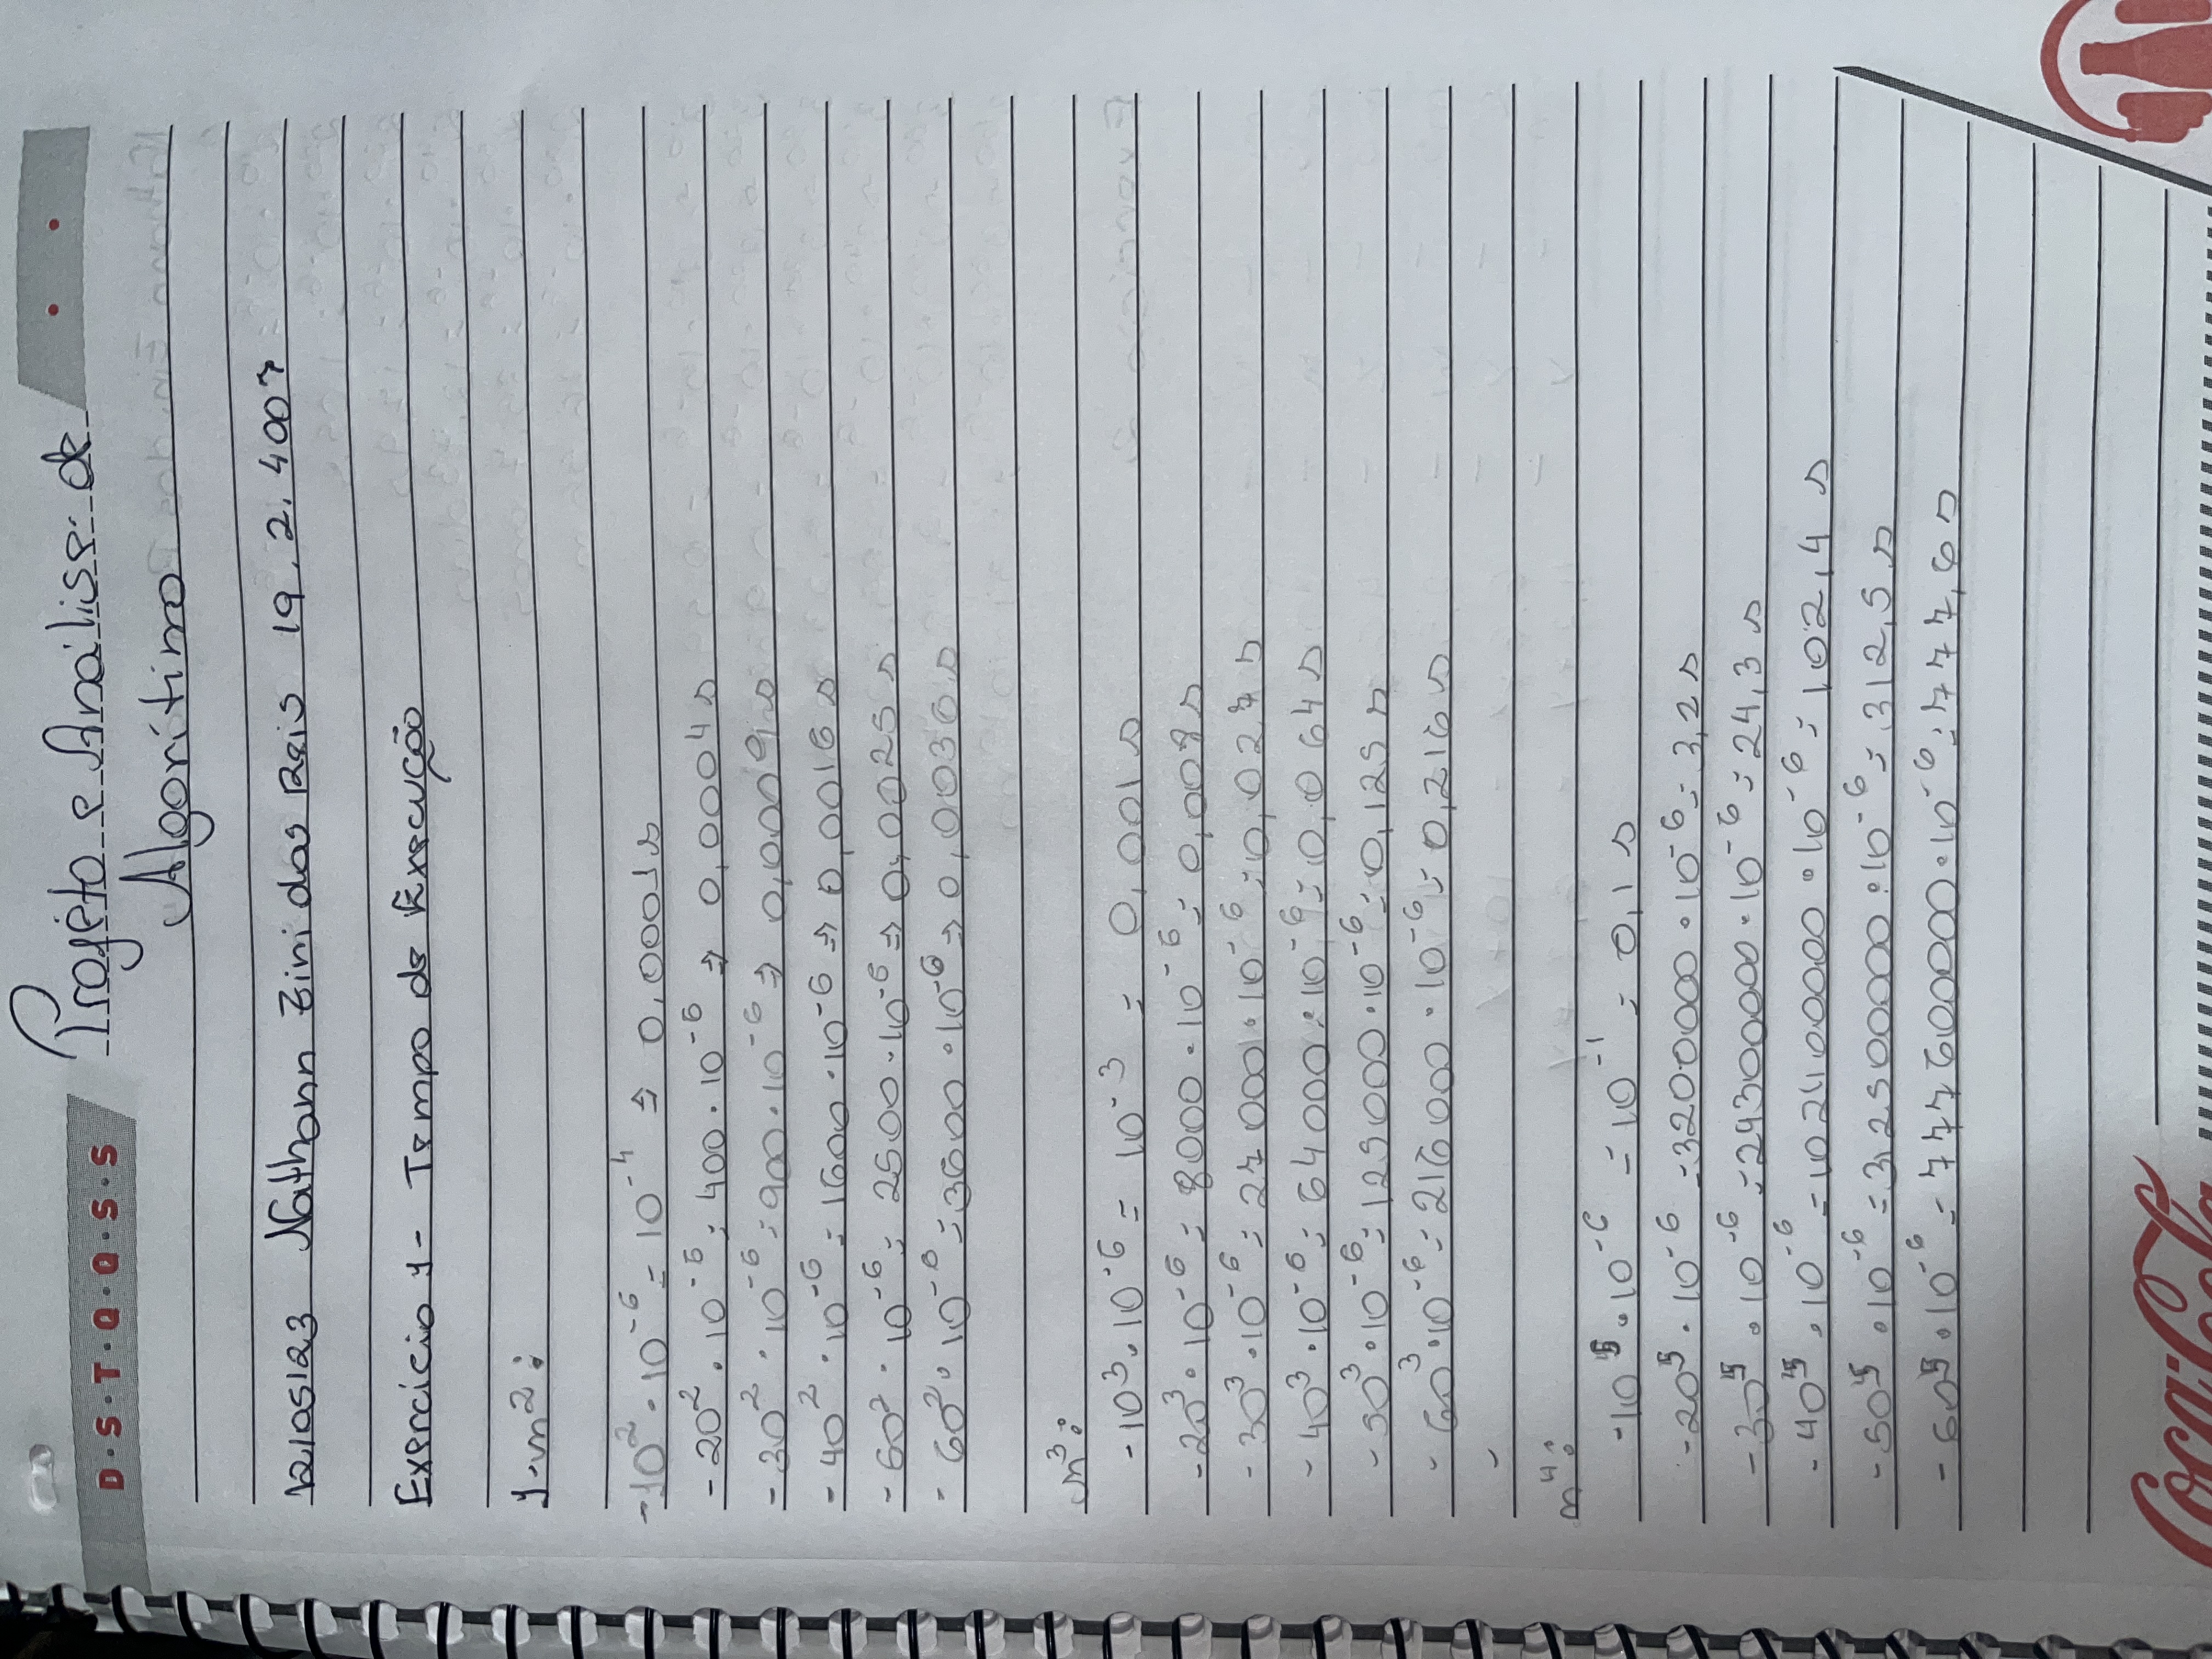 D·S·T·Q·Q·S·S
Projeto e Análise de
Algorítimo
12/05/23 Nathann Zini dos Reis 19.2.4007
Exercício 1- Tempo de Execução
1-n²:
-10²·10⁻⁶ = 10⁻⁴ ⇒ 0,0001s
-20²·10⁻⁶ = 400·10⁻⁶ ⇒ 0,0004s
-30²·10⁻⁶ = 900·10⁻⁶ ⇒ 0,0009s
-40²·10⁻⁶ = 1600·10⁻⁶ ⇒ 0,0016s
-50²·10⁻⁶ = 2500·10⁻⁶ ⇒ 0,0025s
-60²·10⁻⁶ = 3600·10⁻⁶ ⇒ 0,0036s
n³:
-10³·10⁻⁶ = 10⁻³ = 0,001s
-20³·10⁻⁶ = 8000·10⁻⁶ = 0,008s
-30³·10⁻⁶ = 27000·10⁻⁶ = 0,027s
-40³·10⁻⁶ = 64000·10⁻⁶ = 0,064s
-50³·10⁻⁶ = 125000·10⁻⁶ = 0,125s
-60³·10⁻⁶ = 216000·10⁻⁶ = 0,216s
-
n⁴:
-10⁵·10⁻⁶ = 10⁻¹ = 0,1s
-20⁵·10⁻⁶ = 3200000·10⁻⁶ = 3,2s
-30⁵·10⁻⁶ = 24300000·10⁻⁶ = 24,3s
-40⁵·10⁻⁶ = 102400000·10⁻⁶ = 102,4s
-50⁵·10⁻⁶ = 312500000·10⁻⁶ = 312,5s
-60⁵·10⁻⁶ = 777600000·10⁻⁶ = 777,6s
Coca-Cola